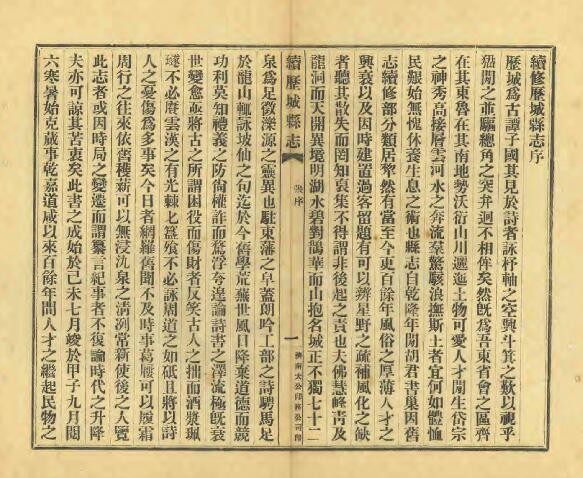 續修歷城縣志序
歷城為古譚子國其見於詩者詠杼軸之空興斗箕之歎以視乎
猺閒之並驅總角之突弁迥不相侔矣然旣為吾東省會之區齊
在其東魯在其南地勢沃衍山川邐迤土物可愛人才閒生岱宗
之神秀高接層雲河水之奔流羣驚駭浪撫斯土者宜何如體恤
民艱始無愧休養生息之術也縣志自乾隆年閒胡君書巢因舊
志續修部分類居犂然有當至今更百餘年風俗之厚薄人才之
興衰以及因時建置過客留題有可以辨星野之疏補風化之缺
者聽其散失而罔知裒集不得謂非後起之責也夫佛慧峰靑及
龍洞而天開異境明湖水碧對鵲華而山抱名城正不獨七十二
續歷城縣志
敘序
一
濟南大公印務公司印
泉為足徵濼源之靈異也駐東藩之皁蓋朗吟工部之詩騁馬足
於龍山輒詠坡仙之句迄於今舊學荒蕪世風日降棄道德而競
功利莫知禮義之防尙權詐而騖浮夸遑論詩書之澤流極旣衰
世變愈亟將古之所謂困役而傷財者反笑古人之拙而酒漿珮
璲不必賡雲漢之有光棘匕簋飧不必詠周道之如砥且將以詩
人之憂傷為多事矣今日者網羅舊聞不及時事葛屨可以履霜
周行之往來依舊穫薪可以無浸氿泉之淸冽常新使後之人覽
此志者或因時局之變遷而謂纂言紀事者不復論時代之升降
夫亦可諒其苦衷矣此書之成始於己未七月竣於甲子九月閱
六寒暑始克蕆事乾嘉道咸以來百餘年間人才之繼起民物之